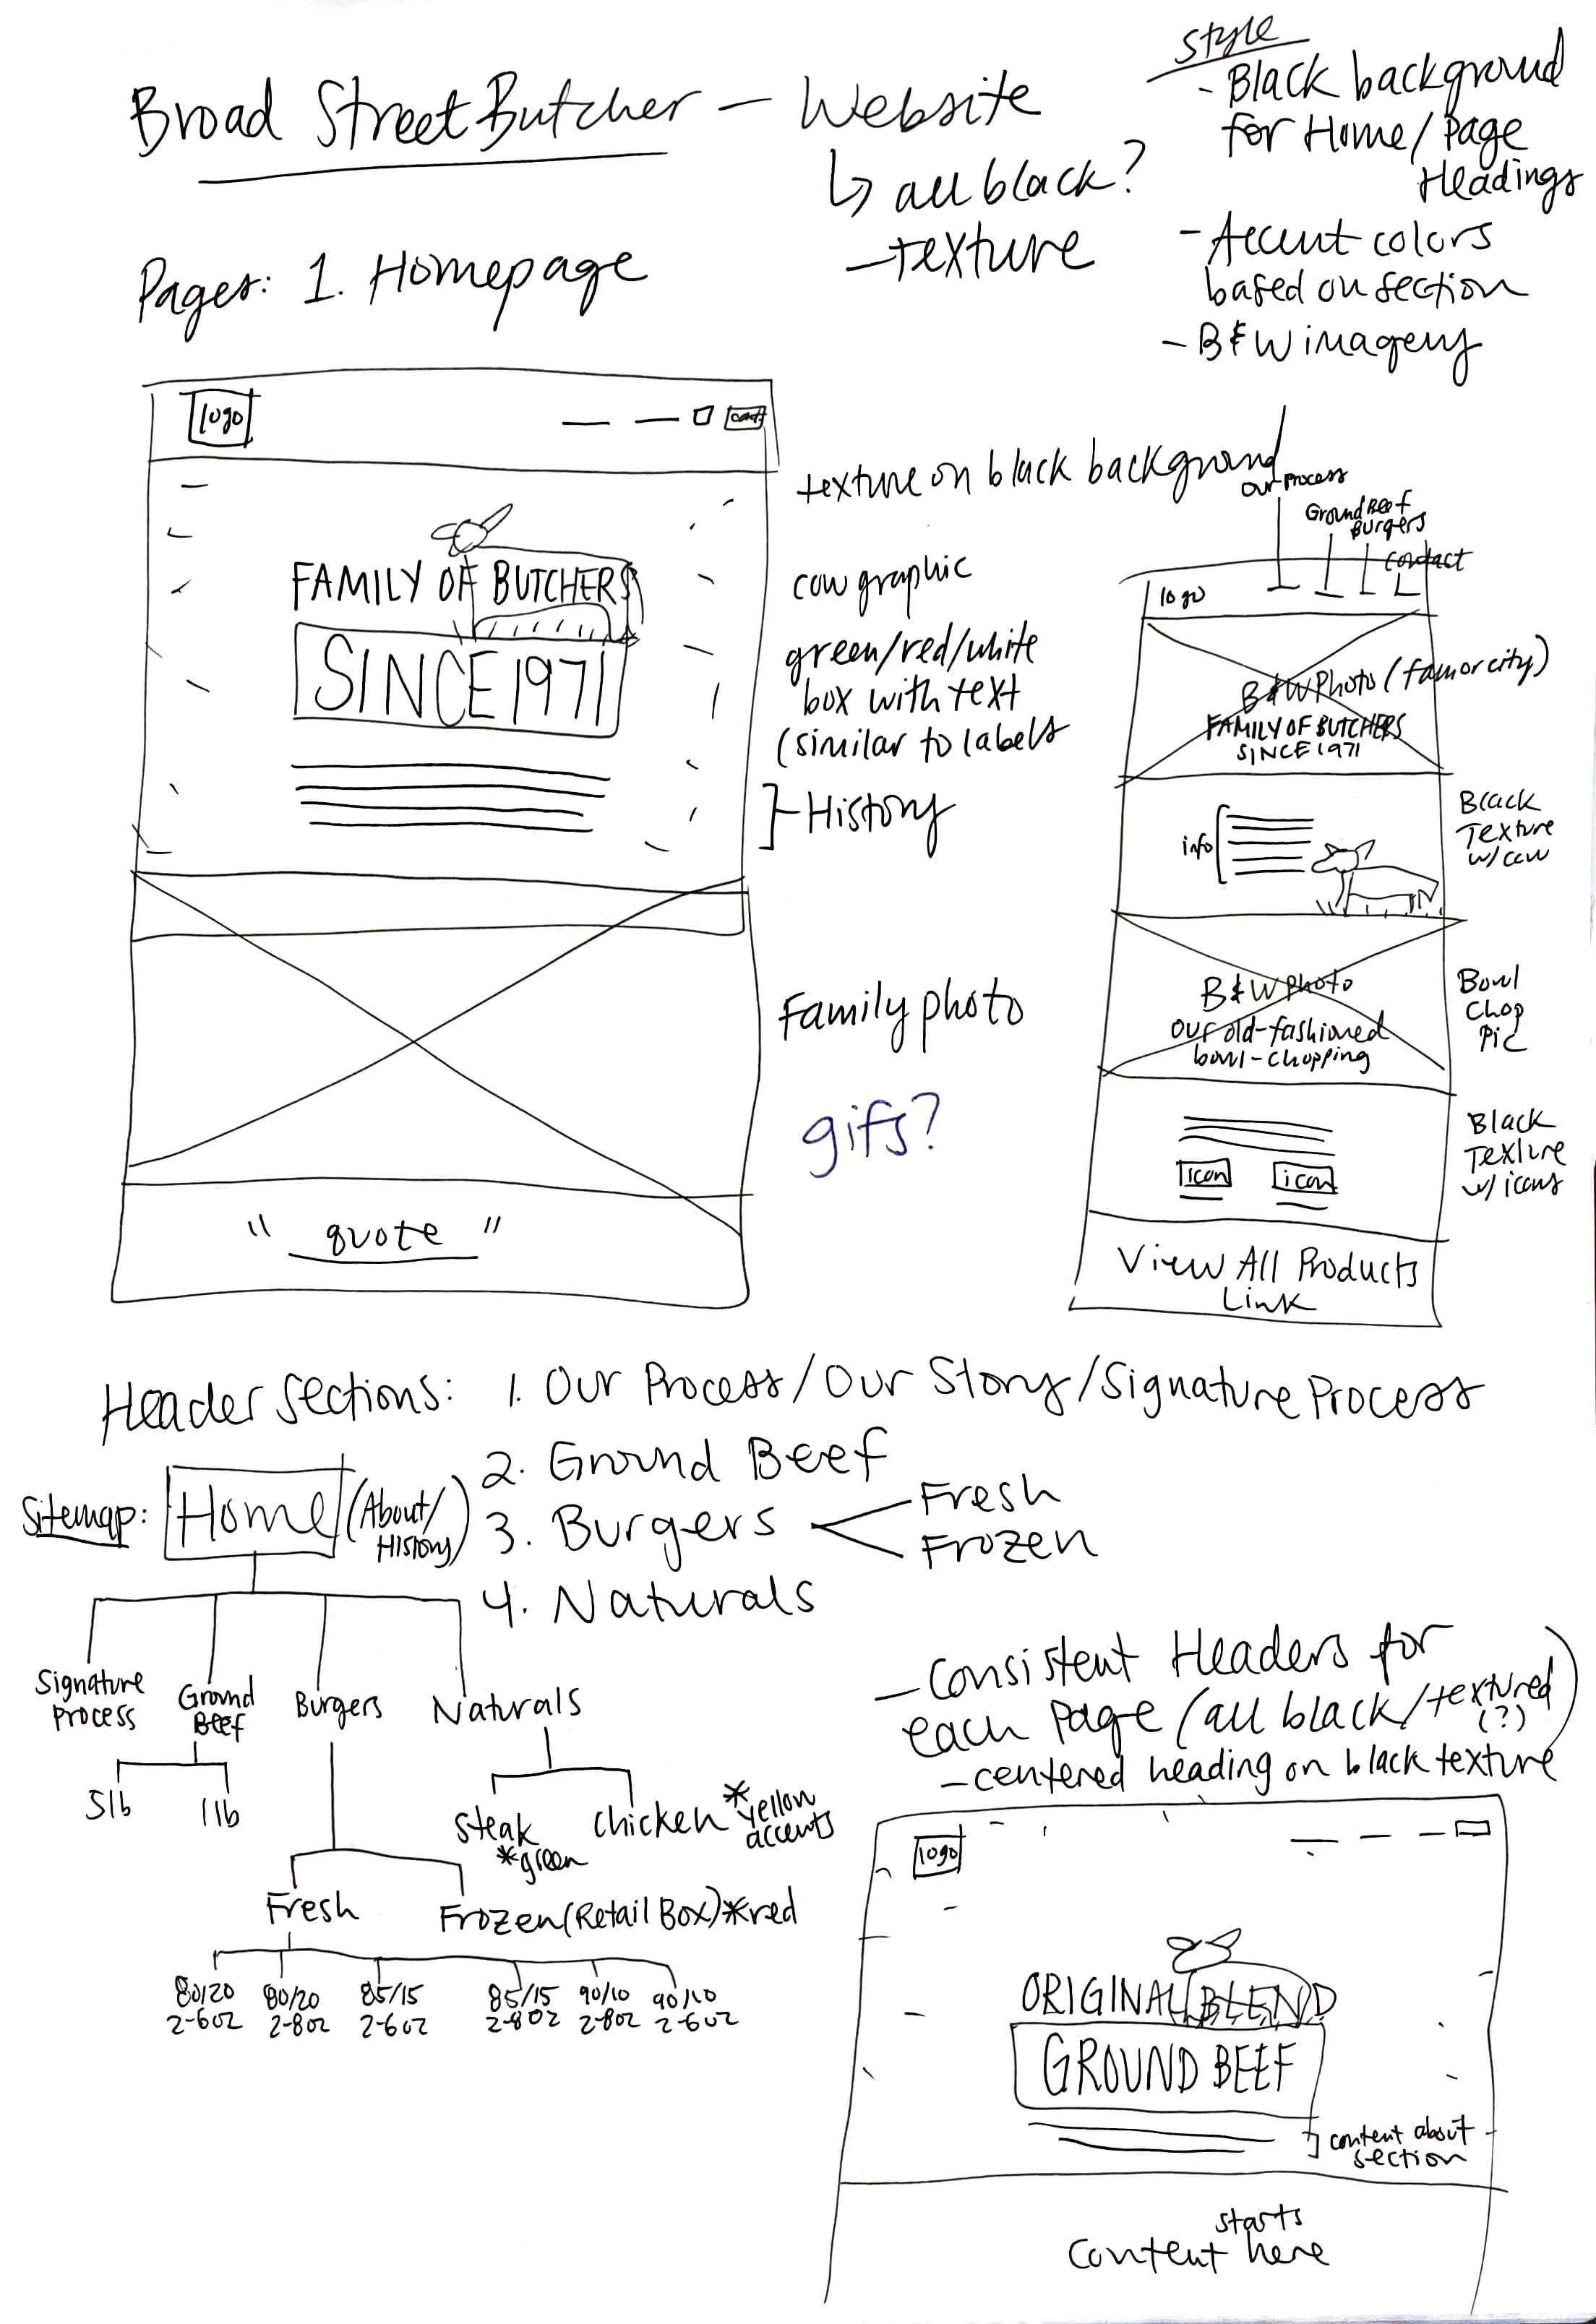 Broad Street Butcher - Website
↳ all black?
- texture
Style
- Black background
for Home/Page
Headings
- Accent colors
based on section
- B&W imagery
Pages: 1. Homepage
logo
texture on black background
cow graphic
FAMILY OF BUTCHERS
SINCE 1971
green/red/white
box with text
(similar to labels
History
Family photo
gifs?
" quote "
our process
Ground Beef
Burgers
contact
logo
B&W Photo (fam or city)
FAMILY OF BUTCHERS
SINCE 1971
info
Black
Texture
w/ cow
B&W Photo
our old-fashioned
bowl-chopping
Bowl
Chop
Pic
icon
icon
Black
Texture
w/ icons
View All Products
Link
Header Sections: 1. Our Process/Our Story/Signature Process
2. Ground Beef
3. Burgers
Fresh
Frozen
4. Naturals
Sitemap: Home (About/
History)
Signature
Process
Ground
Beef
Burgers
Naturals
5lb
1lb
Steak
*green
Chicken *yellow
accents
Fresh
Frozen (Retail Box) *red
80/20
2-6oz
80/20
2-8oz
85/15
2-6oz
85/15
2-8oz
90/10
2-8oz
90/10
2-6oz
- Consistent Headers for
each Page (all black/textured)
(?)
- centered heading on black texture
logo
ORIGINAL BLEND
GROUND BEEF
content about
section
starts
Content here